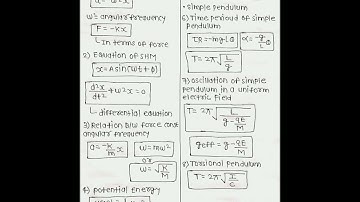 a = -w²x
w = angular frequency
F = -kx
↳ In terms of force
2) Equation of SHM
x = A sin(wt + φ)
d²x/dt² + w²x = 0
↳ differential equation
3) Relation B/w force const
angular frequency
a = -k/M x
w = mw²
or
w = √k/M
4) potential Energy
• simple pendulum
6) Time perioud of simple
pendulum
τR = -mgLθ
α = -g/L θ
T = 2π√L/g
7) oscillation of simple
pendulum in a uniform
electric field
T = 2π√L/(g - qE/M)
geff = g - qE/M
8) Torsional pendulum
T = 2π√I/c